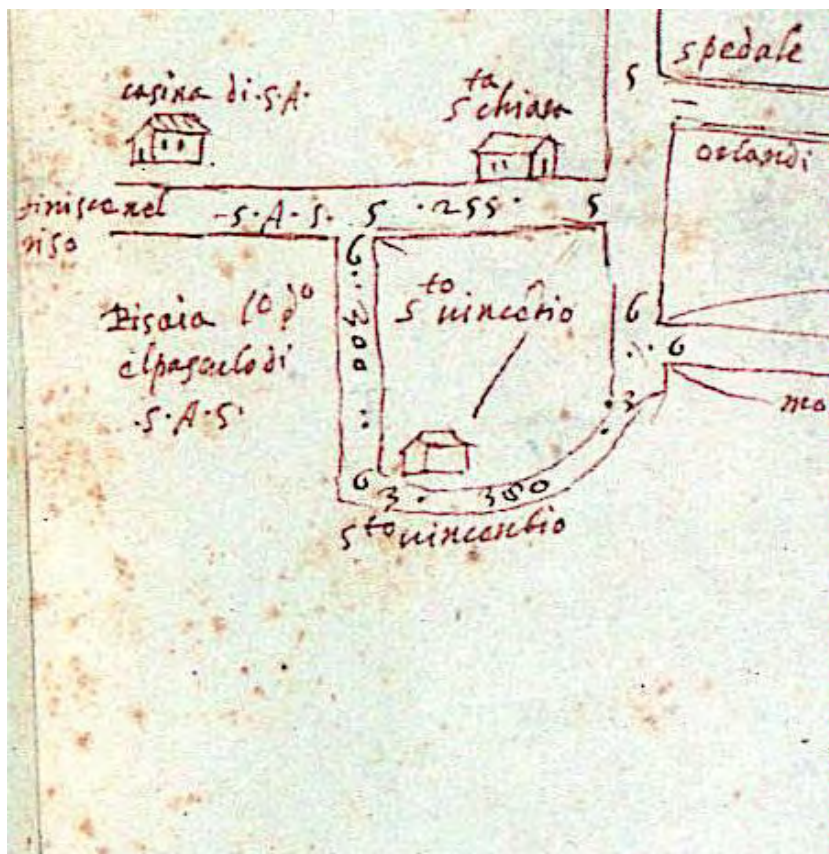 spedale
casina di·S·A·
sta chiara
5
orlandi
finisce nel
riso
·S·A·S·
5
·255·
5
6
sto uincētio
Risaia
el pascolo di
·S·A·S·
300
6
6
3
mo
6
3·
350
sto uincentio